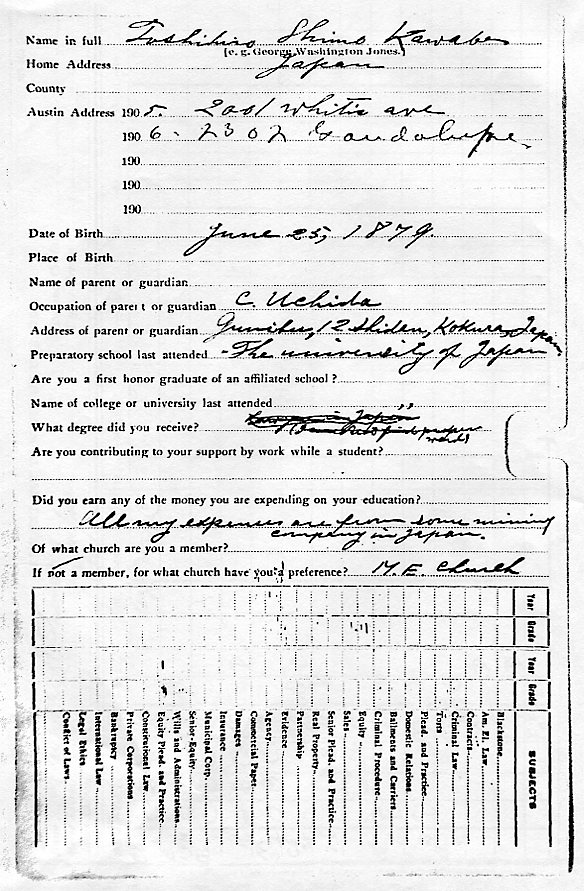 Name in full Toshihiro Shimo Kawabe
[e. g. George Washington Jones.]
Home Address Japan
County
Austin Address 1905. 2001 whitis ave
1906- 2302 Guadalupe.
190
190
190
Date of Birth June 25, 1879.
Place of Birth
Name of parent or guardian
Occupation of parent or guardian C. Uchida
Address of parent or guardian 12 Shiden, Kokura, Japan
Preparatory school last attended - The university of Japan
Are you a first honor graduate of an affiliated school?
Name of college or university last attended "
What degree did you receive? find proper
words
Are you contributing to your support by work while a student?
Did you earn any of the money you are expending on your education?
All my expenses are from some mining
company in Japan.
Of what church are you a member?
If not a member, for what church have you a preference? M. E. Church
SUBJECTS Year Grade Year Grade
Blackstone
Am. El. Law
Contracts
Criminal Law
Torts
Plead. and Practice
Domestic Relations
Bailments and Carriers
Criminal Procedure
Equity
Sales
Senior Plead. and Practice
Real Property
Partnership
Evidence
Agency
Commercial Paper
Damages
Insurance
Municipal Corp.
Senior Equity
Wills and Administrations
Equity Plead. and Practice
Constitutional Law
Private Corporations
Bankruptcy
International Law
Legal Ethics
Conflict of Laws